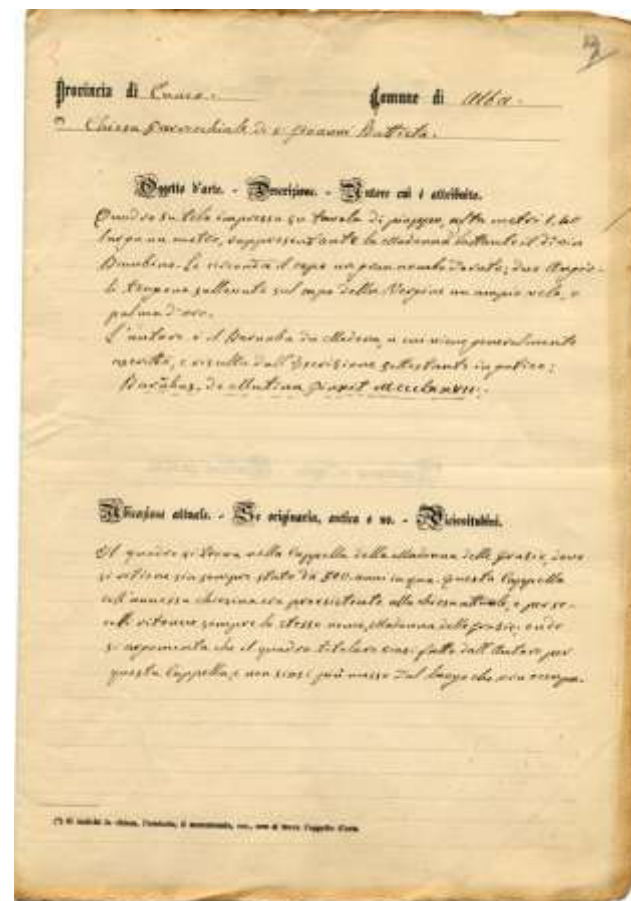 Provincia di Cuneo. Comune di Alba.
(*) Chiesa Parrocchiale di S. Giovanni Battista.
Oggetto d'arte. - Descrizione. - Autore cui è attribuito.
Quadro su tela impressa su tavola di pioppo, alta metri 1,40
larga un metro, rappresentante la Madonna lattante il divin
Bambino. Le circonda il capo un gran nembo dorato; due Angio-
li tengono sollevato sul capo della Vergine un ampio velo, e
palma d'oro.
L'autore è il Barnaba da Modena, a cui viene generalmente
ascritto, e risulta dall'iscrizione sottostante in gotico:
Barnabas de Mutina pinxit MCCCLXXVII.
Ubicazione attuale. - Se originaria, antica o no. - Vicissitudini.
Il quadro si trova nella Cappella della Madonna delle Grazie, dove
si ritiene sia sempre stato da 500 anni in qua. Questa Cappella
coll'annessa chiesina era preesistente alla chiesa attuale, e per se-
coli ritenne sempre lo stesso nome, Madonna delle Grazie; onde
si argomenta che il quadro titolare siasi fatto dall'Autore per
questa Cappella, e non siasi più mosso dal luogo che ora occupa.
(*) Si indichi la chiesa, l'edificio, il monumento, ecc., ove si trova l'oggetto d'arte.